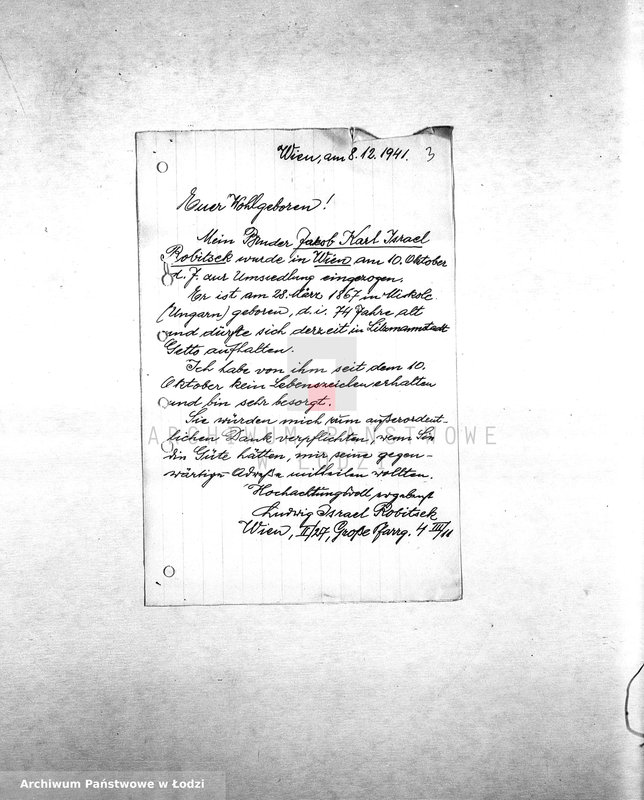 Wien, am 8.12.1941. 3
Euer Wohlgeboren!
Mein Bruder Jakob Karl Israel
Robitsek wurde in Wien am 10. Oktober
d. J. zur Umsiedlung eingezogen.
Er ist am 28. März 1867 in Miskolc
(Ungarn) geboren, d.i. 74 Jahre alt
und dürfte sich derzeit in Litzmannstadt
Getto aufhalten.
Ich habe von ihm seit dem 10.
Oktober kein Lebenszeichen erhalten
und bin sehr besorgt.
Sie würden mich zum außerordent-
lichen Dank verpflichten, wenn Sie
die Güte hätten, mir seine gegen-
wärtige Adreße mitteilen wollten.
Hochachtungsvoll ergebenst
Ludwig Israel Robitsek
Wien, II/27, Große Pfarrg. 4 III/11
ARCHIWUM PAŃSTWOWE
W ŁODZI
Archiwum Państwowe w Łodzi